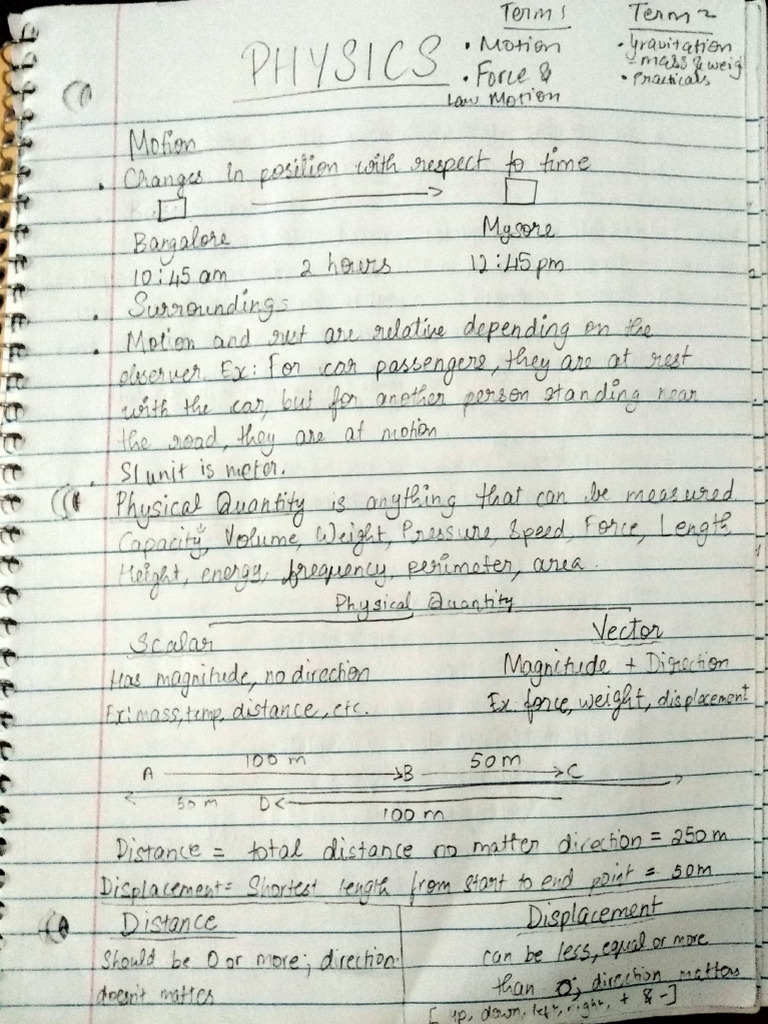 Term 1
Term 2
PHYSICS
• Motion
• Force &
Law Motion
• gravitation
- mass & weig
• Practicals
Motion
• Changes in position with respect to time
Bangalore Mysore
10:45 am 2 hours 12:45 pm
• Surroundings
• Motion and rest are relative depending on the
observer. Ex: For car passengers, they are at rest
with the car, but for another person standing near
the road, they are at motion
• SI unit is meter.
Physical Quantity is anything that can be measured
Capacity, Volume, Weight, Pressure, Speed, Force, Length
Height, energy, frequency, perimeter, area.
Physical Quantity
Scalar Vector
Has magnitude, no direction Magnitude + Direction
Ex: mass, temp, distance, etc. Ex: force, weight, displacement
100 m 50 m
A B C
50 m D
100 m
Distance = total distance no matter direction = 250 m
Displacement = Shortest length from start to end point = 50 m
Distance Displacement
Should be 0 or more; direction can be less, equal or more
doesn't matter than 0; direction matters
[up, down, left, right, + & -]